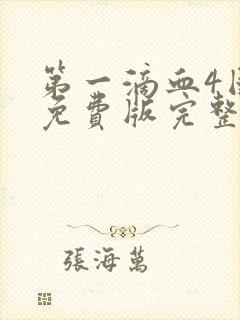 第一滴血4
免費版完整
張海萬